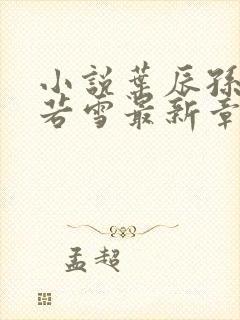 小説葉辰孫
若雪最新章
孟超